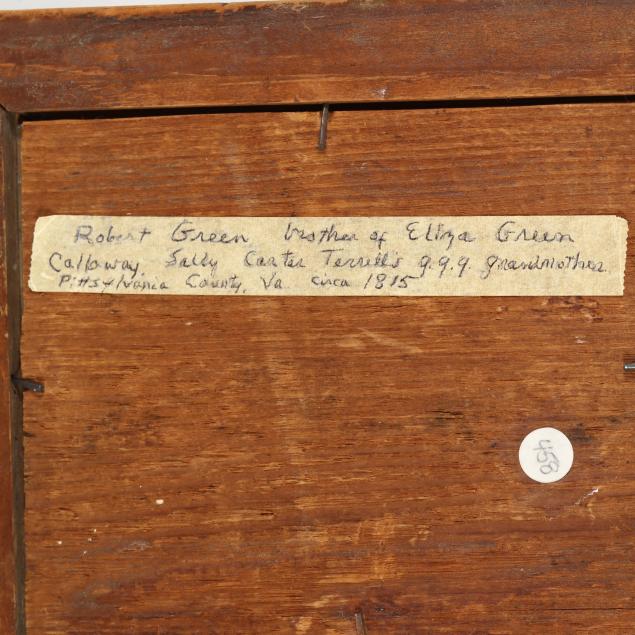 Robert Green, brother of Eliza Green
Calloway, Sally Carter Terrell's g.g.g. grandmother.
Pittsylvania County, Va. circa 1815
458